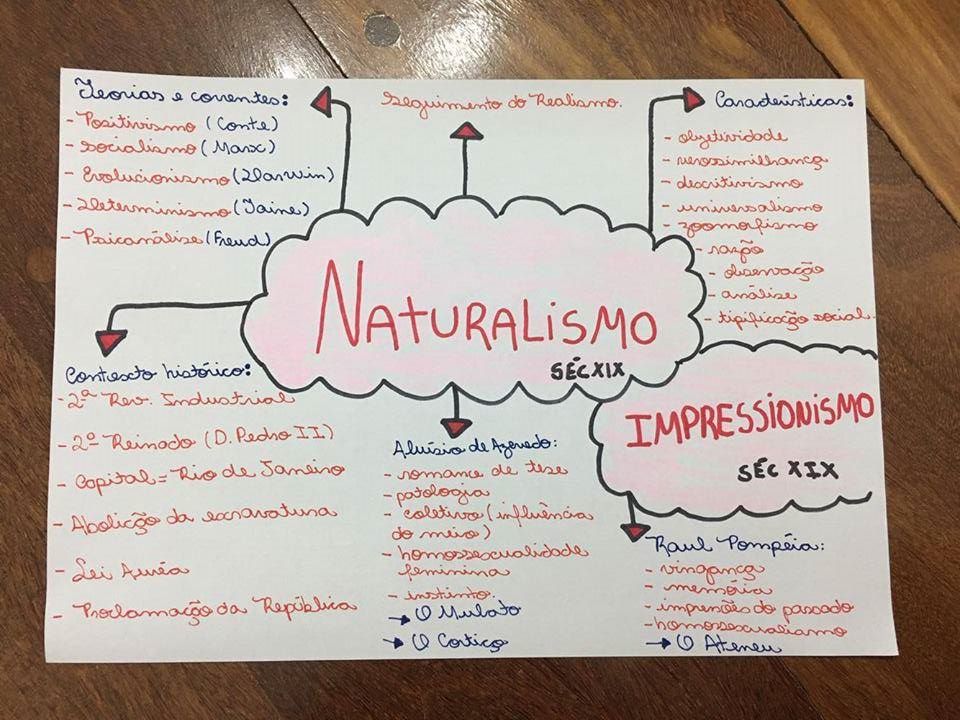 Teorias e correntes:
- Positivismo (Conte)
- Socialismo (Marx)
- Evolucionismo (Darwin)
- Determinismo (Taine)
- Psicanálise (Freud)
Seguimento do Realismo.
Características:
- objetividade
- verossimilhança
- descritivismo
- universalismo
- zoomorfismo
- razão
- observação
- análise
- tipificação social.
NATURALISMO
SÉC XIX
IMPRESSIONISMO
SÉC XIX
Contexto histórico:
- 2ª Rev. Industrial
- 2º Reinado (D. Pedro II)
- Capital = Rio de Janeiro
- Abolição da escravatura
- Lei Auréa
- Proclamação da República
Aluísio de Azevedo:
- romance de tese
- patologia
- coletivo (influência
do meio)
- homossexualidade
feminina
- instinto.
→ O Mulato
→ O Cortiço
Raul Pompéia:
- vingança
- memória
- impressões do passado
- homossexualismo
→ O Ateneu